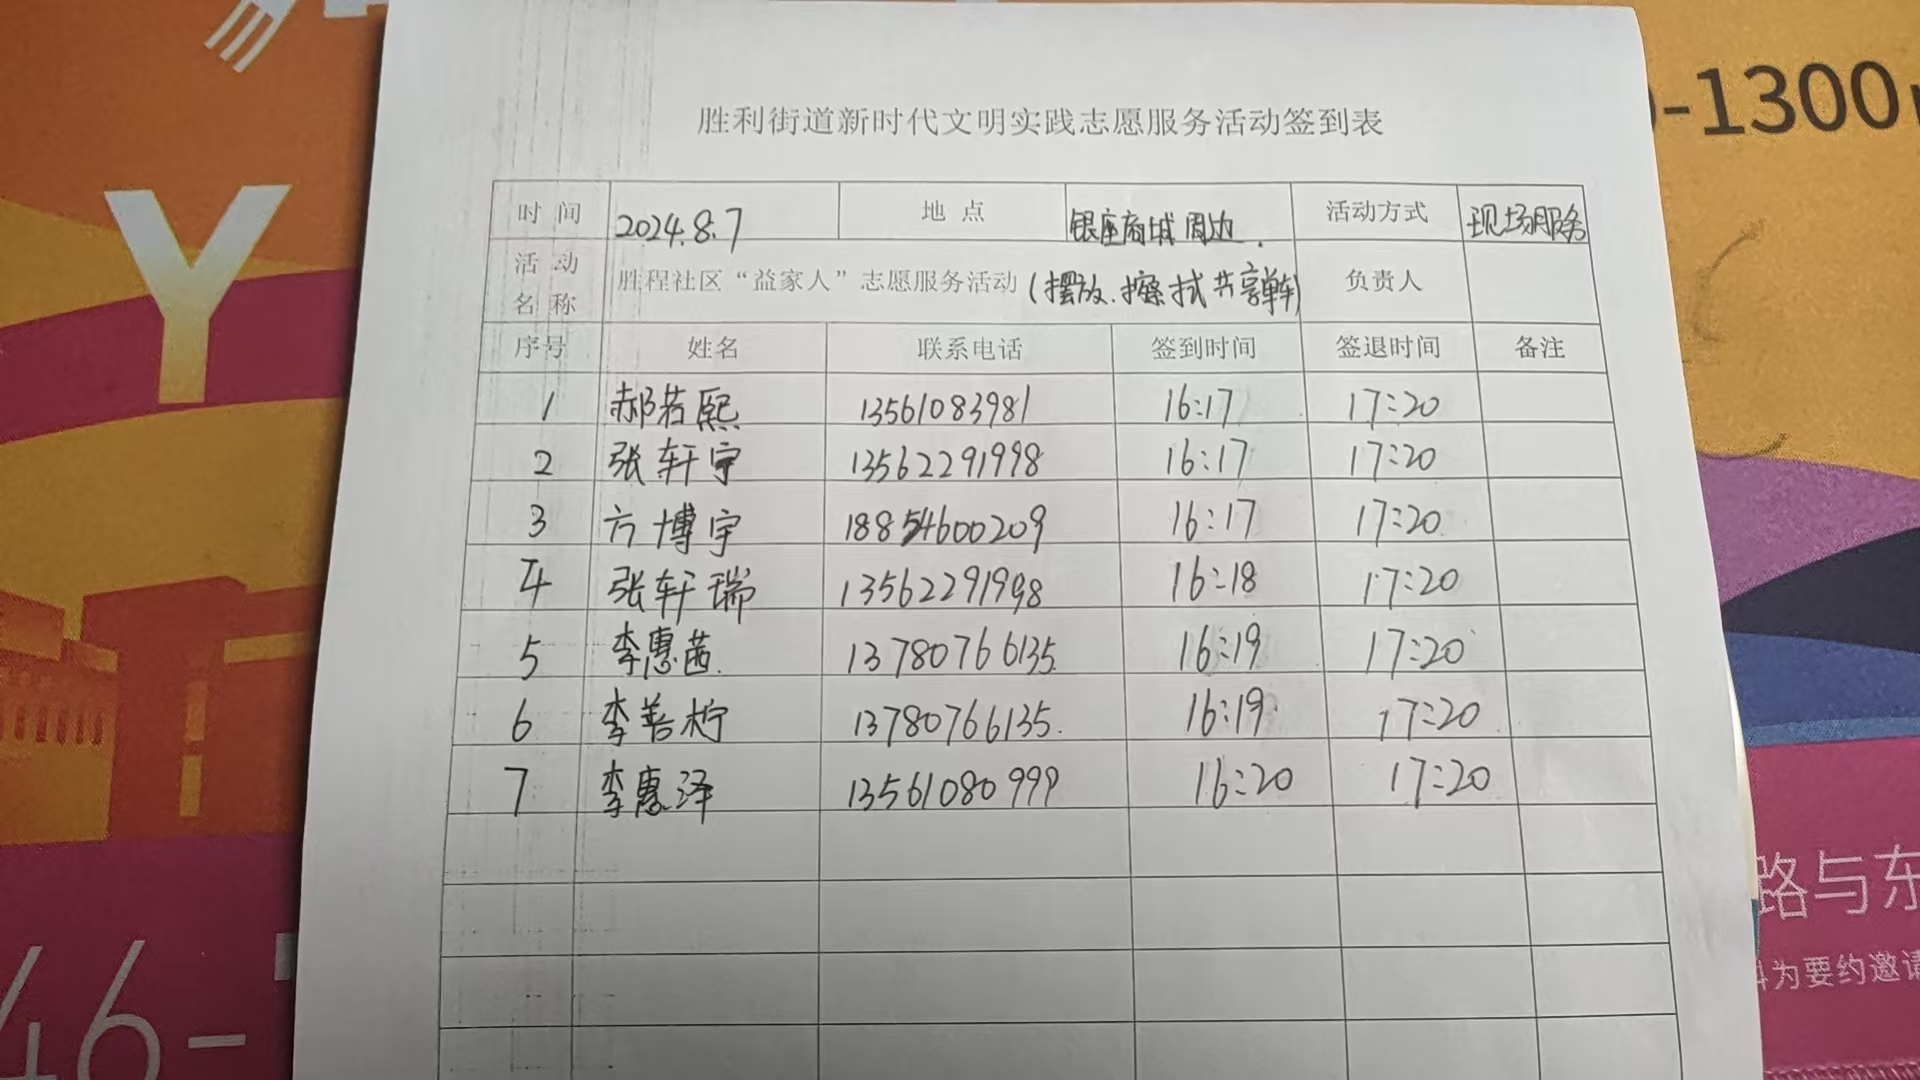 -1300
Y
胜利街道新时代文明实践志愿服务活动签到表
时 间 2024.8.7 地 点 银座商城周边. 活动方式 现场服务
活 动 名 称 胜程社区“益家人”志愿服务活动(摆放、擦拭共享单车) 负责人
序号 姓名 联系电话 签到时间 签退时间 备注
1 郝若熙 13561083981 16:17 17:20
2 张轩宇 13562291998 16:17 17:20
3 方博宇 18854600209 16:17 17:20
4 张轩瑞 13562291998 16:18 17:20
5 李惠茜. 13780766135 16:19 17:20
6 李善柠 13780766135. 16:19 17:20
7 李惠泽 13561080999 16:20 17:20
路与东
为要约邀请
46-